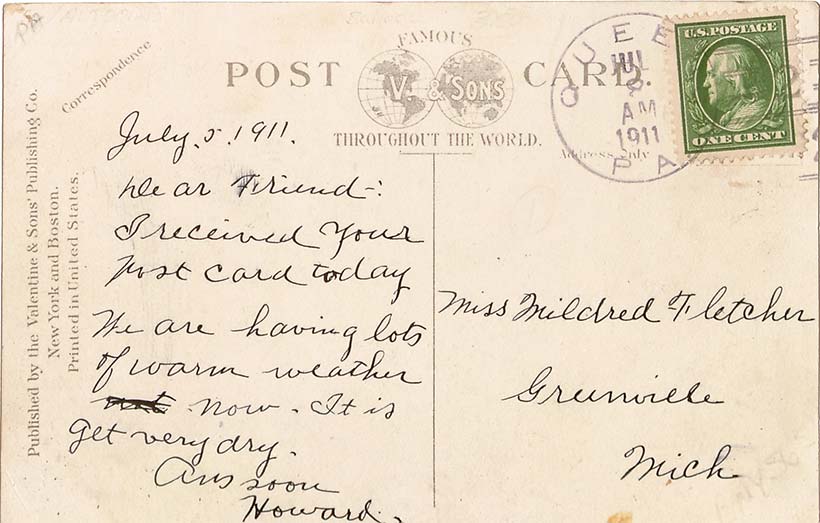 Correspondence
FAMOUS
POST CARD.
V. & SONS
THROUGHOUT THE WORLD.
Address Only
U.S. POSTAGE
ONE CENT
QUEE
JUL
8
AM
1911
PA
Published by the Valentine & Sons' Publishing Co.
New York and Boston.
Printed in United States.
July. 5. 1911.
Dear Friend-:
I received Your
Post card today
We are having lots
of warm weather
now. It is
get very dry.
Ans soon
Howard.
Miss Mildred Fletcher
Greenville
Mich